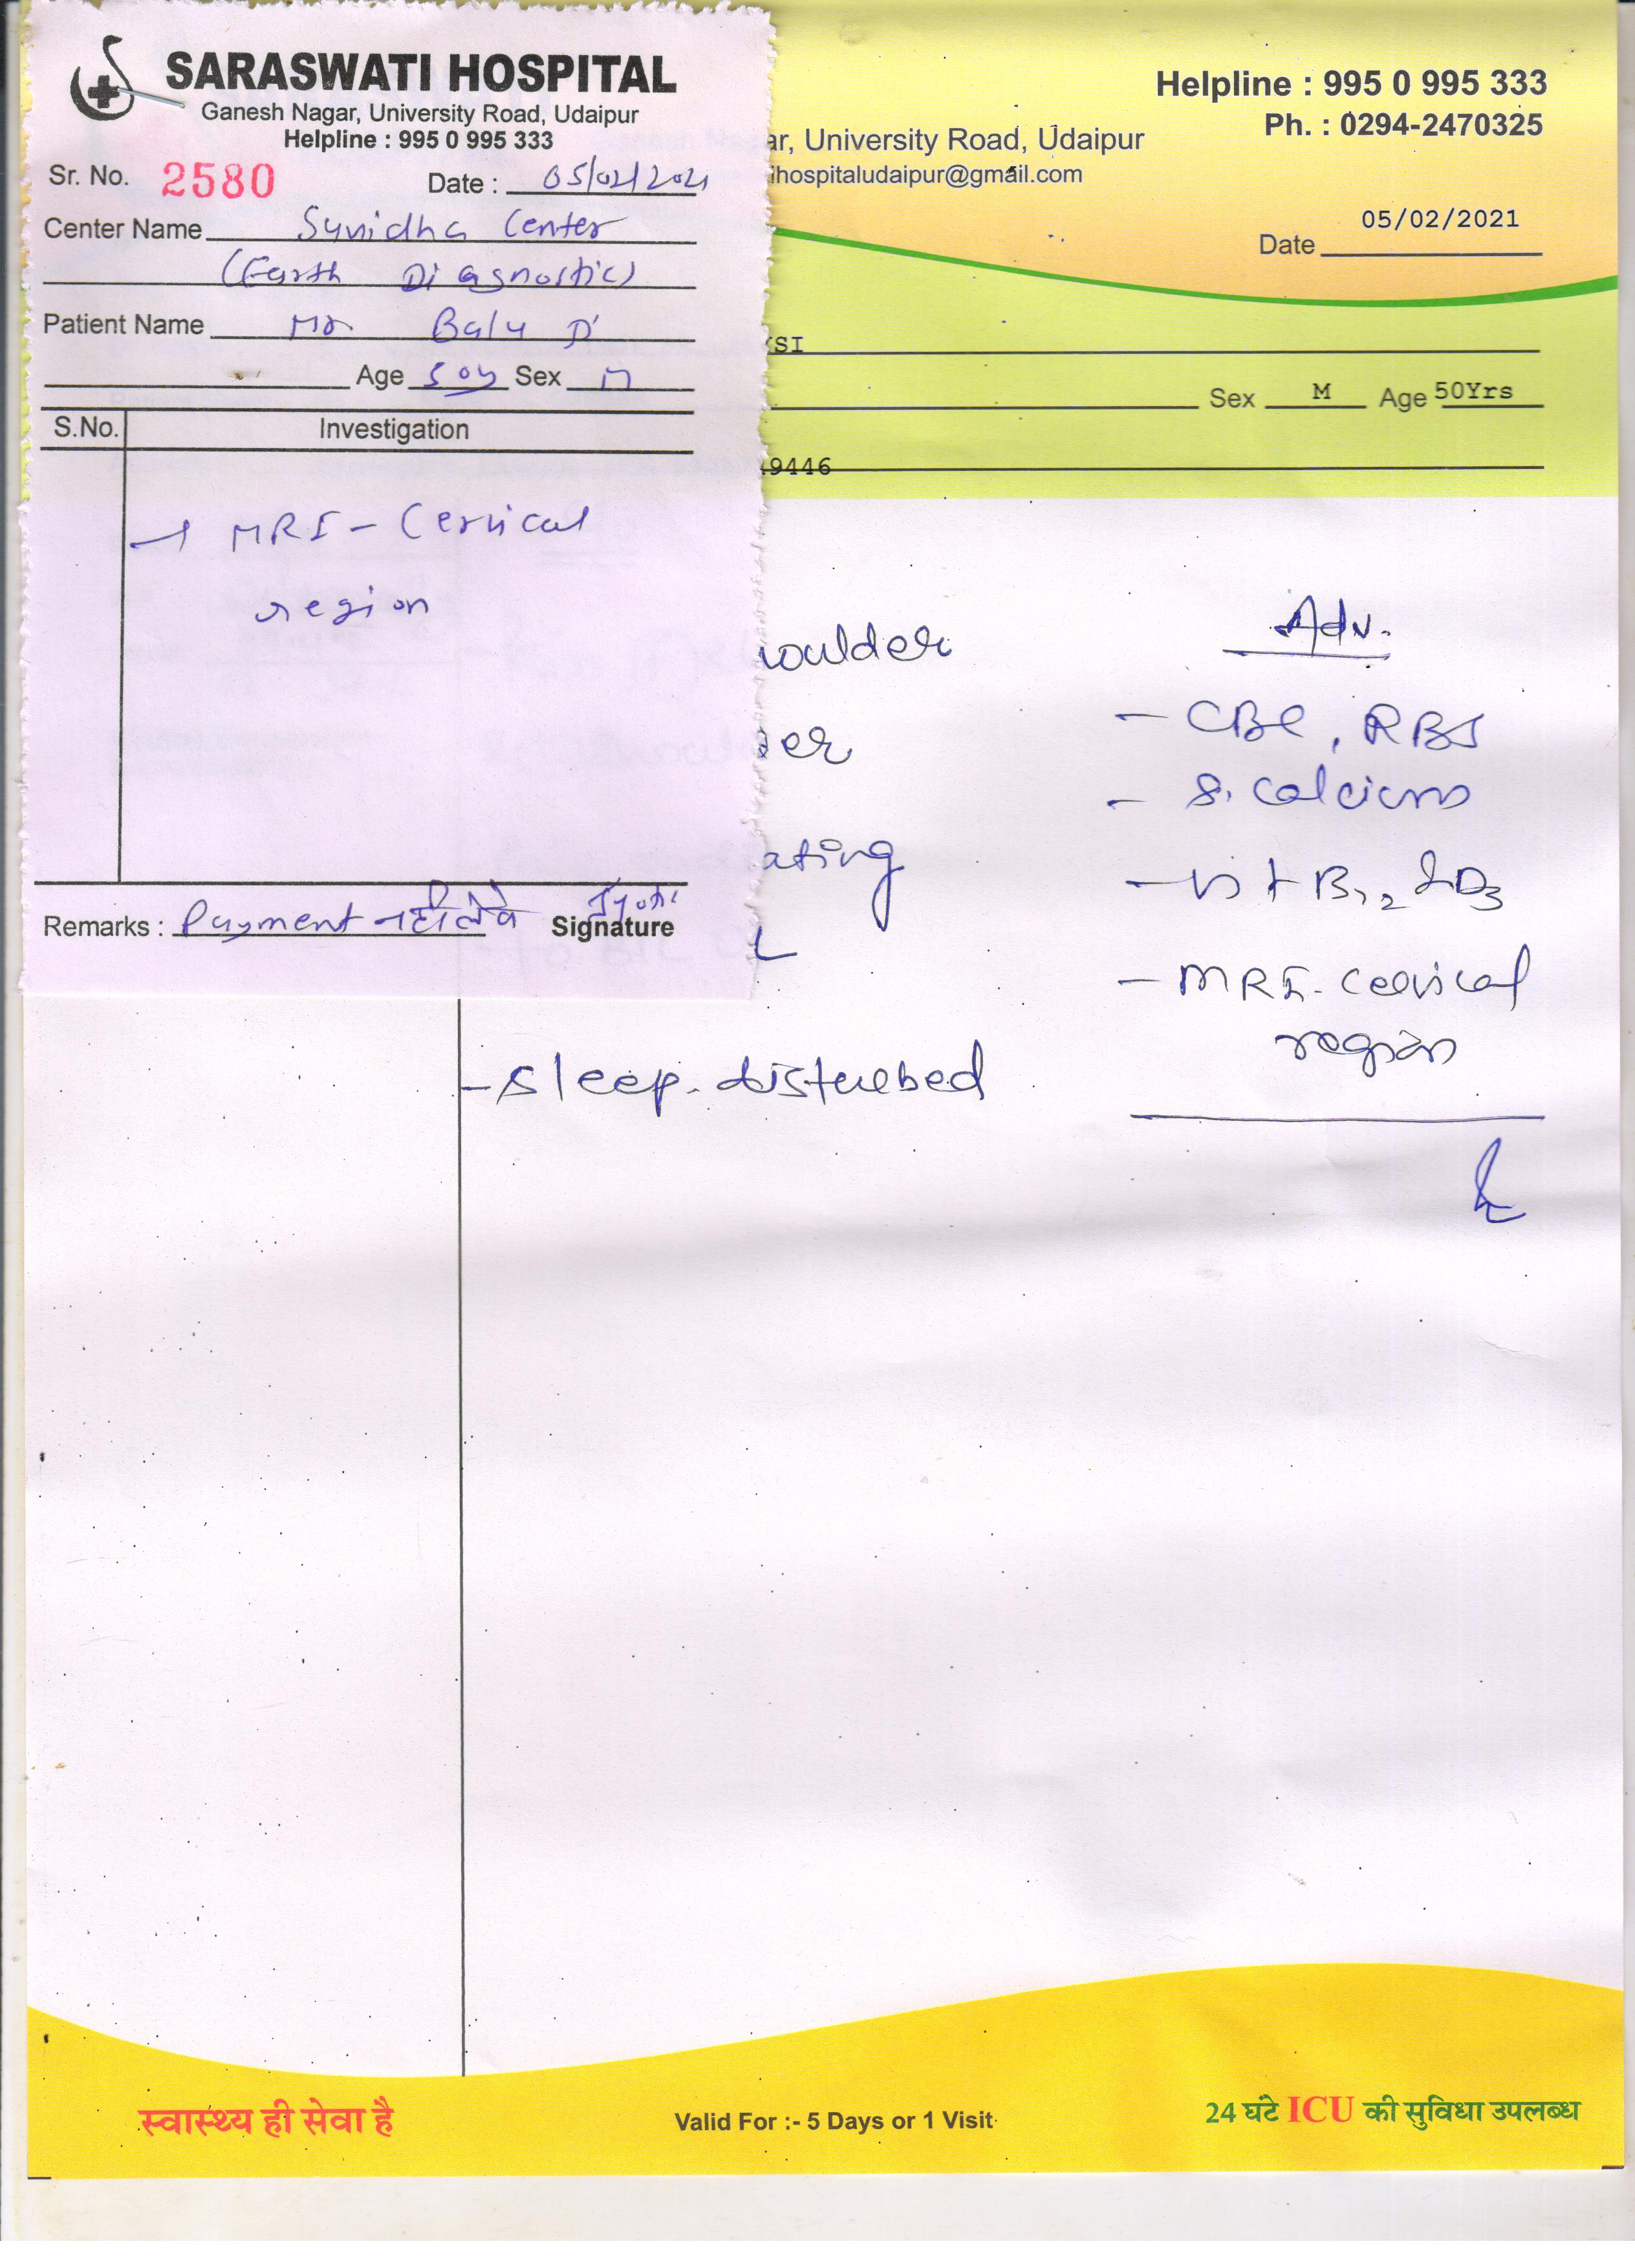 SARASWATI HOSPITAL
Ganesh Nagar, University Road, Udaipur
Helpline : 995 0 995 333
Sr. No. 2580 Date : 05/02/2021
Center Name Sunidha Center
(Earth Diagnostic)
Patient Name Mr Balu D'
Age 50y Sex M
S.No. Investigation
→ MRI - Cervical
region
Remarks : Payment नहीं लेवे Signature Jyoti
Helpline : 995 0 995 333
Ph. : 0294-2470325
ar, University Road, Udaipur
ihospitaludaipur@gmail.com
Date 05/02/2021
SI
Sex M Age 50Yrs
9446
oulder
er
ating
- Sleep. disturbed
Adv.
- CBC, RBS
- S. Calcium
- Vit B12 & D3
- MRI. Cervical
region
स्वास्थ्य ही सेवा है
Valid For :- 5 Days or 1 Visit
24 घंटे ICU की सुविधा उपलब्ध